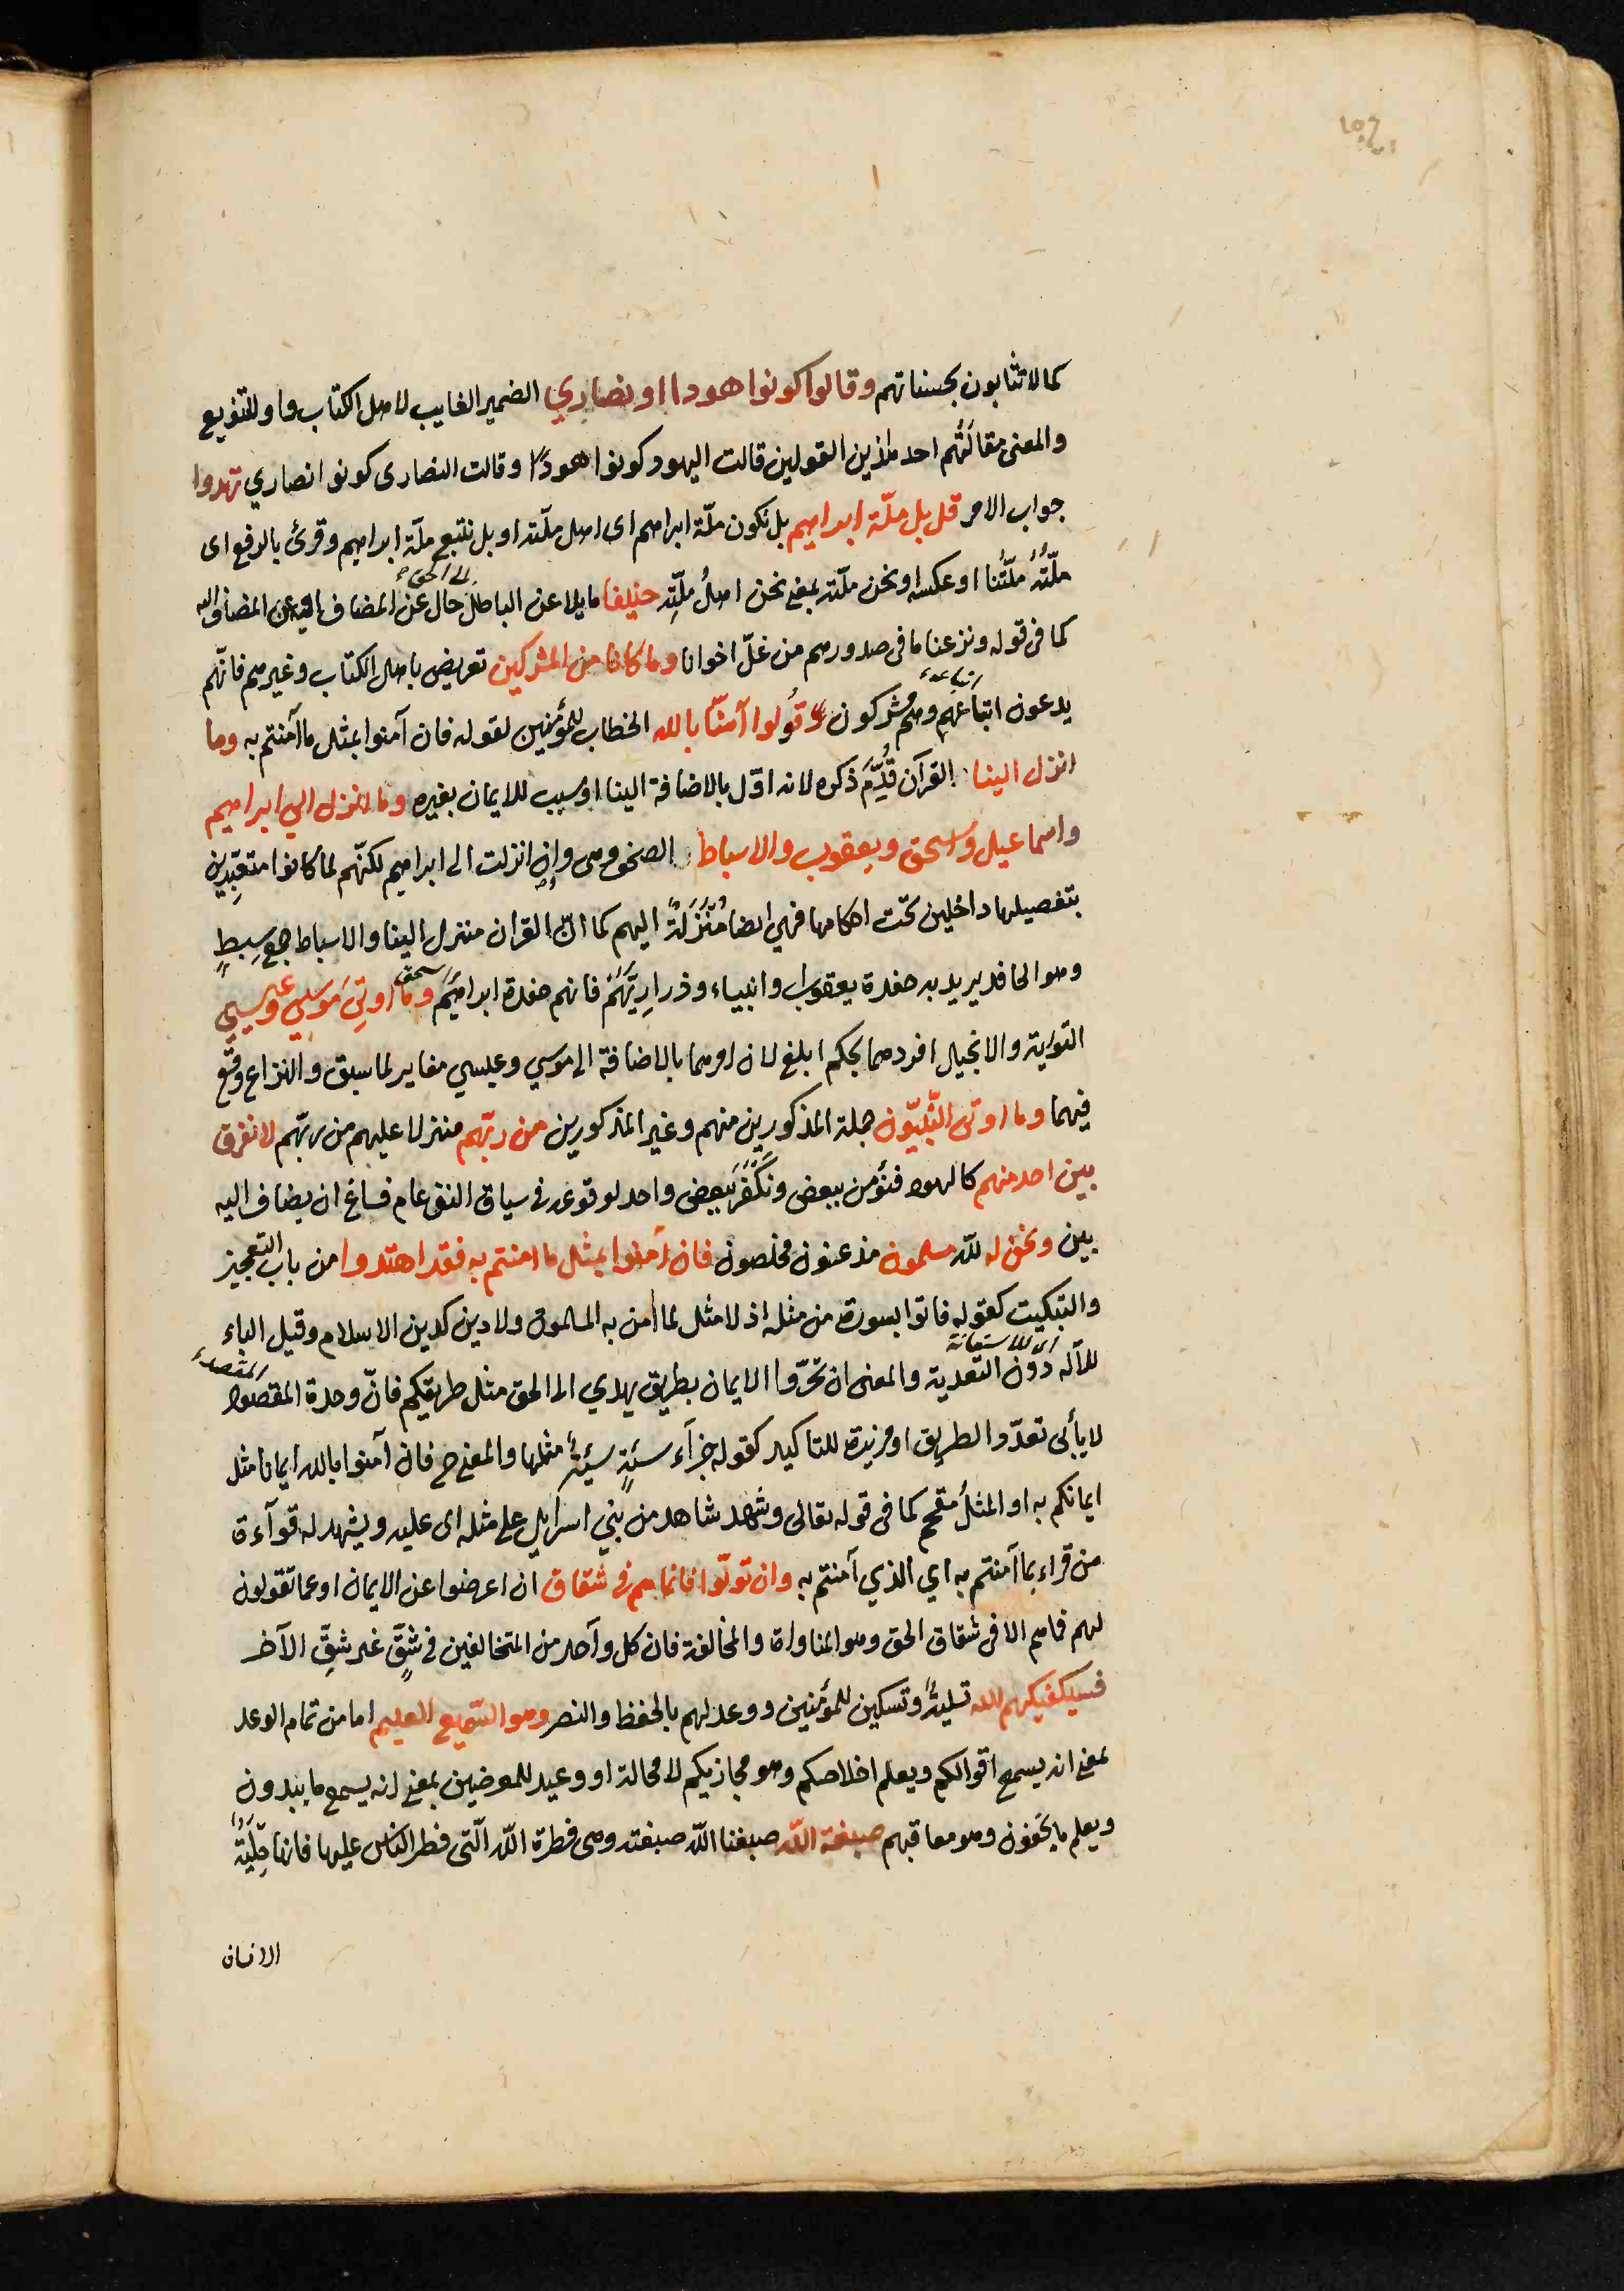 كما لا تثابون بحسناتهم وقالوا كونوا هودا او نصاري الضمير الغايب لاهل الكتاب واو للتنويع
والمعنى مقالتُهم احد هذين القولين قالت اليهود كونوا هودًا وقالت النصارى كونوا نصاري تهتدوا
جواب الامر قل بل ملّة ابراهيم بل نكون ملّة ابراهيم اى اهل ملّته او بل نتبع ملّة ابراهيم وقرئ بالرفع اى
ملّتُهُ ملّتُنا او عكسه او نحن ملّته بمعنى نحن اهلُ ملّتِه حنيفا مايلا عن الباطل الى الحق حال عن المضاف او عن المضاف اليه
كما فى قوله ونزعنا ما فى صدورهم من غلّ اخوانا وما كان من المشركين تعريض باهل الكتاب وغيرهم فانّهم
يدعون اتباعهم وهم مشركون قُولوا آمنّا بالله الخطاب للمؤمنين لقوله فان آمنوا بمثل ما آمنتم به وما
انزل الينا القرآن قُدِّمَ ذكره لانه اوّل بالاضافة الينا او سبب للايمان بغيره وما انزل الي ابراهيم
واسماعيل واسحق ويعقوب والاسباط الصحف وهى وان انزلت الى ابراهيم لكنّهم لما كانوا متعبّدين
بتفصيلها داخلين تحت احكامها فهي ايضا مُنْزَلَةٌ اليهم كما انّ القران منزل الينا والاسباط جمع سِبطٍ
وهو الحافد يريد به حفدة يعقوب او ابناءه وذراريّهم فانهم حفدة ابراهيم واسحق وما اوتي موسي وعيسي
التورية والانجيل افردهما بحكم ابلغ لان امرهما بالاضافة الى موسي وعيسي مغاير لما سبق والنزاع وقع
فيهما وما اوتى النّبيّون جملة المذكورين منهم وغير المذكورين من ربّهم منزلا عليهم من ربّهم لا نفرق
بين احد منهم كاليهود فنؤمن ببعض ونكفر ببعض واحد لوقوعه فى سياق النفى عام فساغ ان يضاف اليه
بين ونحن له لله مسلمون مذعنون مخلصون فان آمنوا بمثل ما امنتم به فقد اهتدوا من باب التعجيز
والتبكيت كقوله فاتوا بسورة من مثله اذ لا مثل لما آمن به المسلمون ولا دين كدين الاسلام وقيل الباء
للآلة اى للاستعانة دون التعدية والمعنى ان تحرّوا الايمان بطريق يهدي الى الحق مثل طريقكم فانّ وحدة المقصود
لا يأبى تعدّد الطريق او مزيدة للتاكيد كقوله جزآء سيئةٍ سيئةٌ مثلها والمعنى ح فان آمنوا بالله ايمانا مثل
ايمانكم به او المثلُ مقحم كما فى قوله تعالى وشهد شاهد من بني اسرائيل على مثله اى عليه ويشهد له قرآءة
من قراء بما آمنتم به اي الذي آمنتم به وان تولّوا فانما هم فى شقاق ان اعرضوا عن الايمان او عما تقولون
لهم فما هم الا فى شقاق الحق وهو المناواة والمخالفة فان كل واحد من المتخالفين فى شقٍّ غير شقّ الآخر
فسيكفيكهم الله تسليةٌ وتسكين للمؤمنين ووعد لهم بالحفظ والنصر وهو السّميع العليم اما من تمام الوعد
بمعنى انه يسمع اقوالكم ويعلم اخلاصكم وهو مجازيكم لا محالة او وعيد للمعرضين بمعنى انه يسمع ما يبدون
ويعلم ما يخفون وهو معاقبهم صبغة اللّه صبغنا اللّه صبغته وهى فطرة اللّه الّتى فطر الناس عليها فانها حِلْيَةُ
الانسان